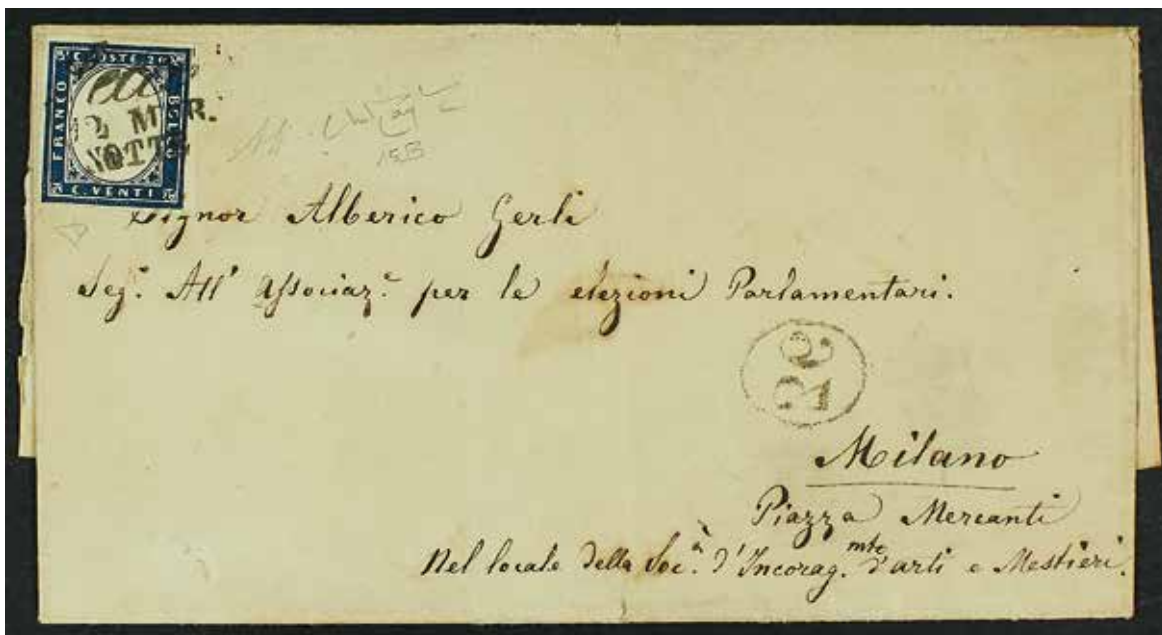 C. POSTE 20
FRANCO
BOLLO
C. VENTI
2 MAR.
NOTTE
Signor Alberico Gerli
Seg.º All' Associaz.e per le elezioni Parlamentari.
Milano
Piazza Mercanti
Nel locale della Soc.à d'Incorag.mto d'arti e Mestieri.